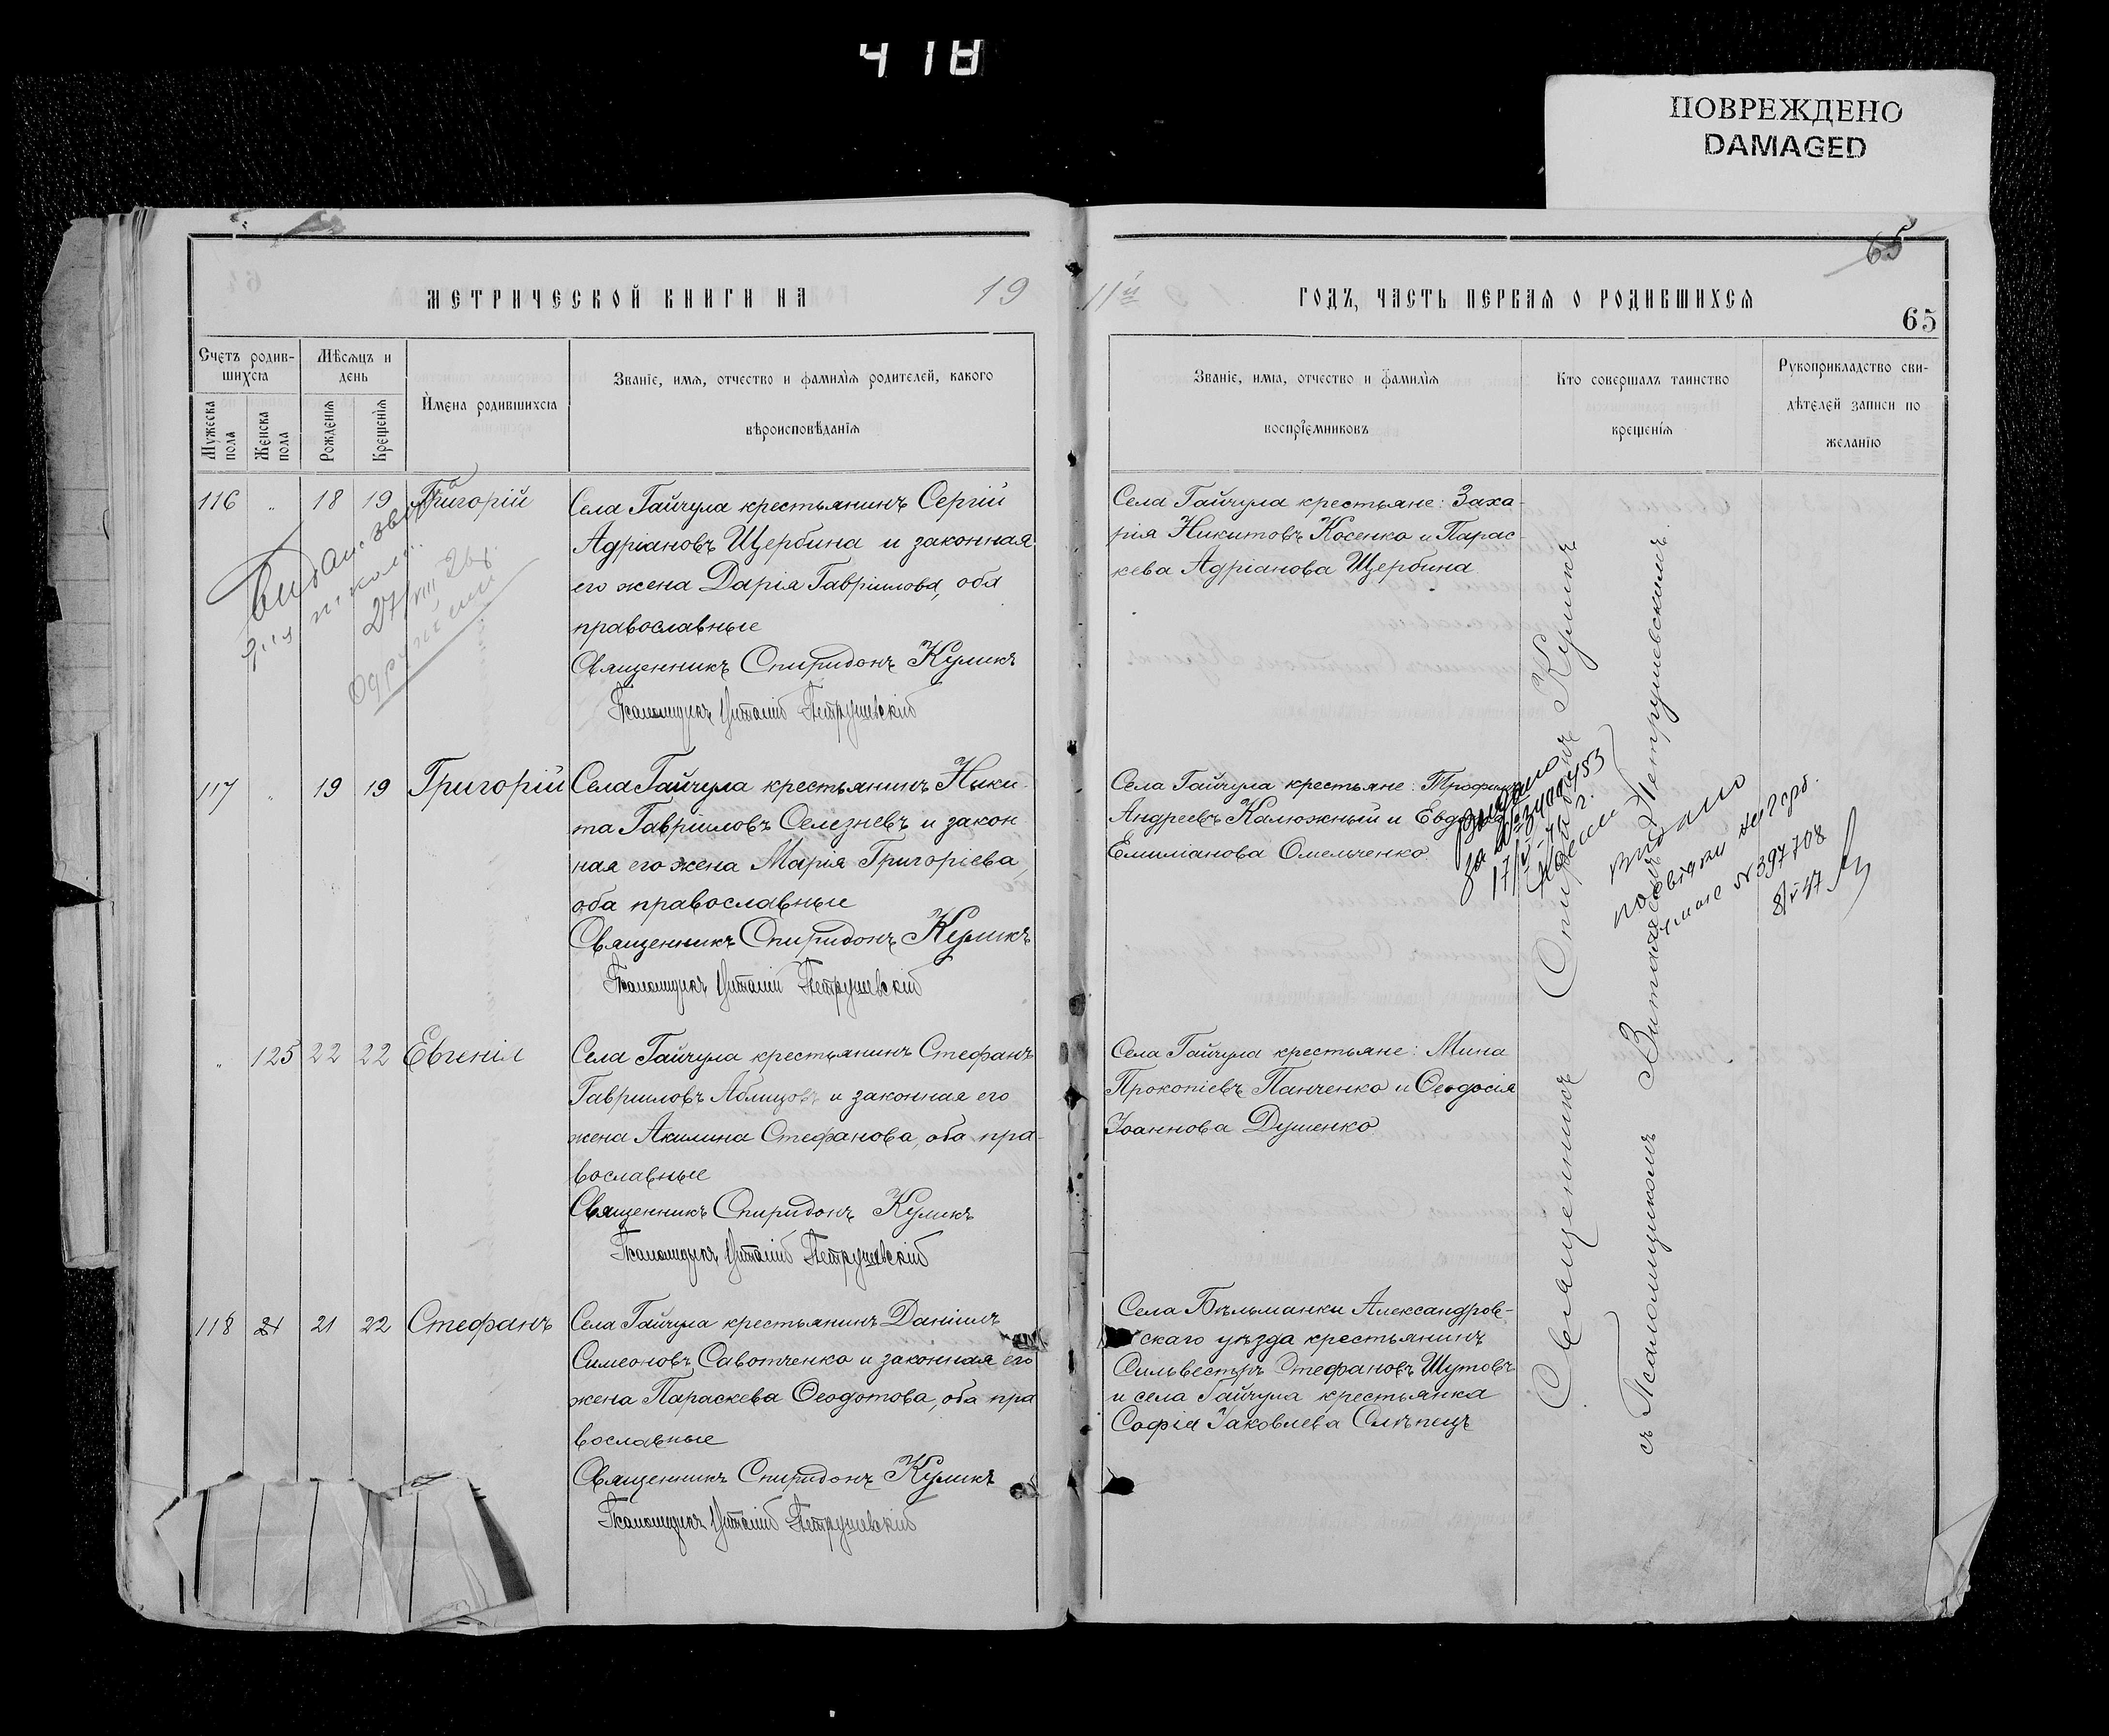 418
ПОВРЕЖДЕНО
DAMAGED
65
МЕТРИЧЕСКОЙ КНИГИ НА 19
11й ГОДЪ, ЧАСТЬ ПЕРВАЯ О РОДИВШИХСЯ
65
Счетъ родив-
шихся
Мужеска пола
Женска пола
Мѣсяцъ и
день
Рожденія
Крещенія
Имена родившихся
Званіе, имя, отчество и фамилія родителей, какого
вѣроисповѣданія
Званіе, имя, отчество и фамилія
воспріемниковъ
Кто совершалъ таинство
крещенія
Рукоприкладство сви-
дѣтелей записи по
желанію
116 „ 18 19 Григорій
Села Гайчула крестьянинъ Сергій
Адріановъ Щербина и законная
его жена Дарія Гавріилова, оба
православные
Священникъ Спиридонъ Куликъ
Псаломщикъ Виталій Петрушевскій
Села Гайчула крестьяне: Заха-
рія Никитовъ Косенко и Парас-
кева Адріанова Щербина
27/VIII 26г.
117 „ 19 19 Григорій
Села Гайчула крестьянинъ Ники-
та Гавріиловъ Селезневъ и закон
ная его жена Марія Григоріева,
оба православные
Священникъ Спиридонъ Куликъ
Псаломщикъ Виталій Петрушевскій
Села Гайчула крестьяне: Трофимъ
Андреевъ Калюжный и
Емиліанова Омельченко
Видано
за №
Видано
№ 397708
8/V 47
„ 125 22 22 Евгенія
Села Гайчула крестьянинъ Стефанъ
Гавриловъ Аблицовъ и законная его
жена Акилина Стефанова, оба пра-
вославные
Священникъ Спиридонъ Куликъ
Псаломщикъ Виталій Петрушевскій
Села Гайчула крестьяне: Мина
Прокопіевъ Панченко и Ѳеодосія
Іоаннова Душенко
118 21 21 22 Стефанъ
Села Гайчула крестьянинъ Даніилъ
Симеоновъ Савотченко и законная его
жена Параскева Ѳеодотова, оба пра
вославные
Священникъ Спиридонъ Куликъ
Псаломщикъ Виталій Петрушевскій
Села Бѣльманки Александров-
скаго уѣзда крестьянинъ
Сильвестръ Стефановъ Шутовъ
и села Гайчула крестьянка
Софія Іаковлева Слѣпецъ
Священникъ Спиридонъ Куликъ
съ Псаломщикомъ Виталіемъ Петрушевскимъ.